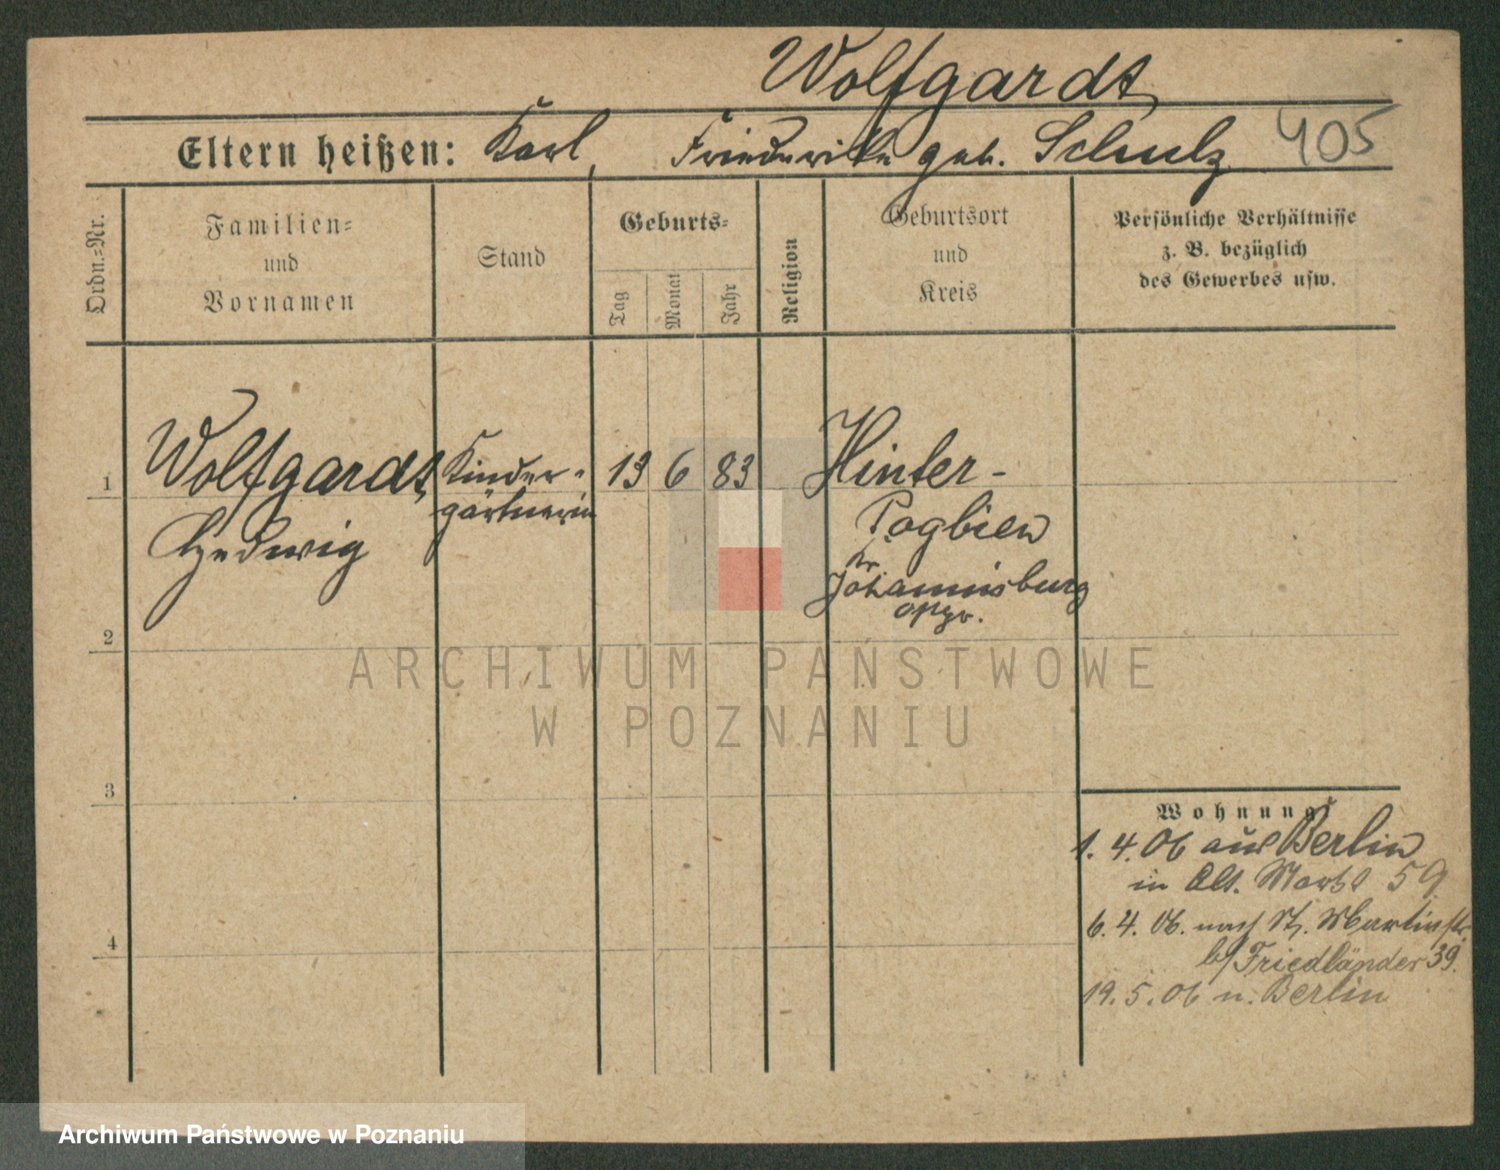 Wolfgardt
Eltern heißen: Karl, Friederike geb. Schulz 405
Ordn.=Nr.
Familien=
und
Vornamen
Stand
Geburts=
Tag
Monat
Jahr
Religion
Geburtsort
und
Kreis
Persönliche Verhältnisse
z. B. bezüglich
des Gewerbes usw.
1
Wolfgardt,
Hedwig
Kinder-
gärtnerin
13 6 83
Hinter-
Pogbien
Kr.
Johannisburg
Ostpr.
2
3
4
Wohnung
1. 4. 06 aus Berlin
in Alt. Markt 59
6. 4. 06. nach St. Martinstr.
b/Friedländer 39.
19. 5. 06 n. Berlin
ARCHIWUM PAŃSTWOWE
W POZNANIU
Archiwum Państwowe w Poznaniu